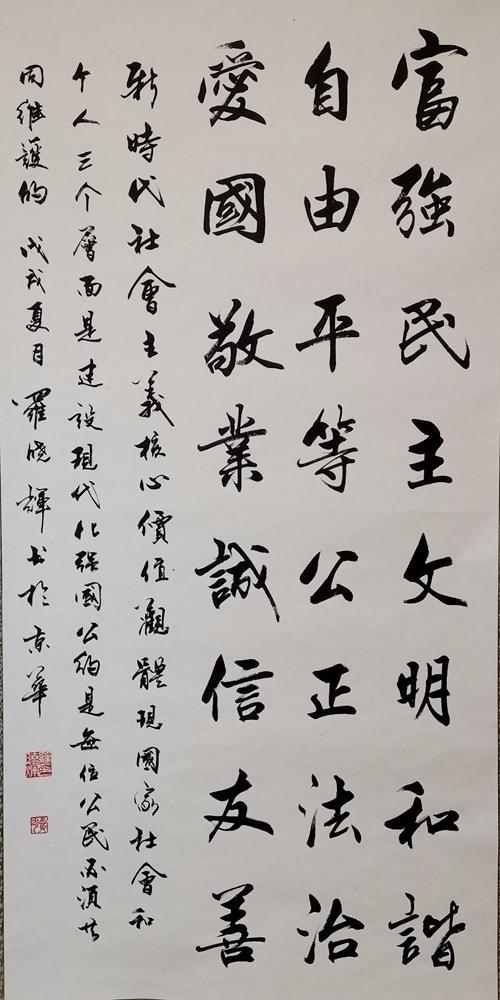 富強民主文明和諧
自由平等公正法治
愛國敬業誠信友善
新時代社會主義核心價值觀體現國家社會和
个人三个層面是建設現代化强國公約是每位公民必須共
同維護的 戊戌夏月 羅曉輝书於京華